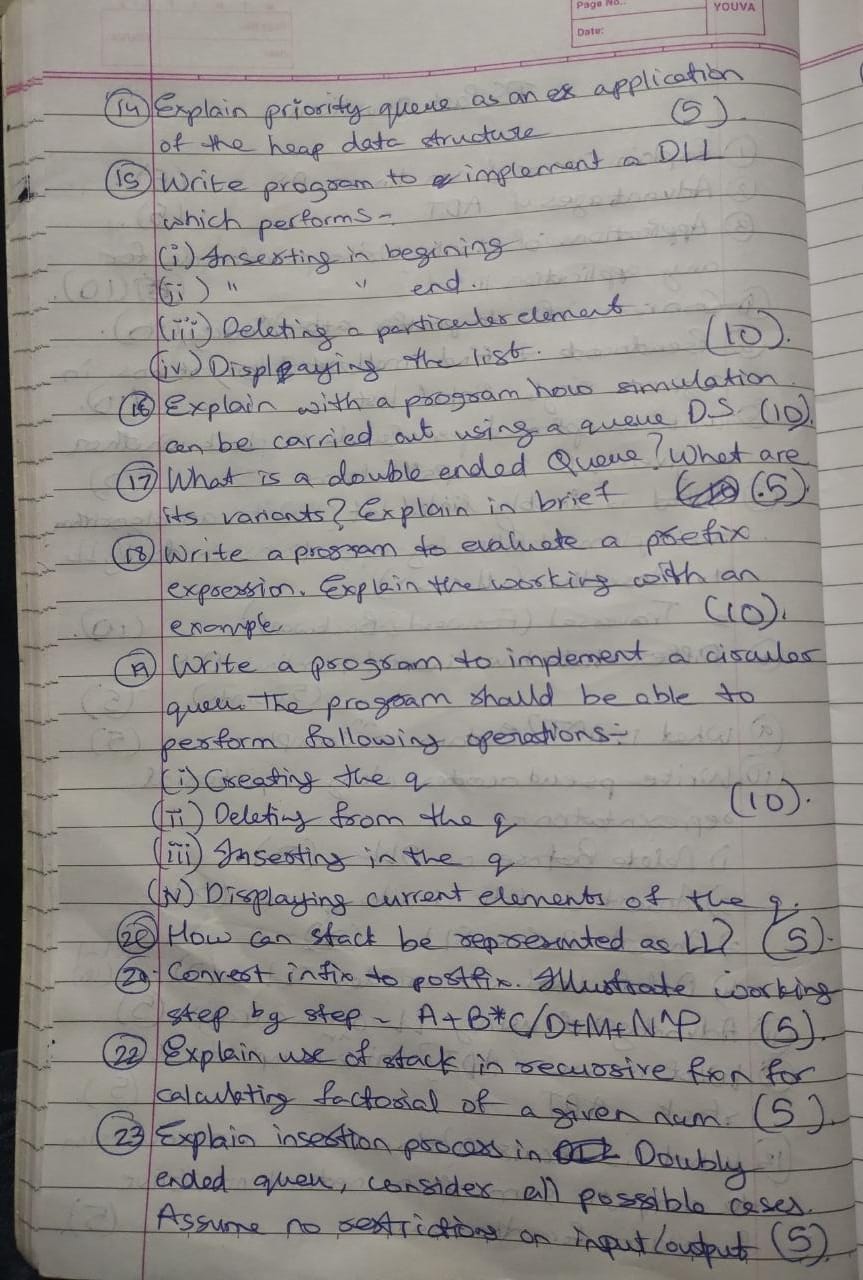 Page No.:
YOUVA
Date:
(14) Explain priority queue as an ex application
of the heap data structure (5)
(15) Write program to implement a DLL
which performs -
(i) Inserting in begining
(ii) " " end.
(iii) Deleting a particular element
(iv) Displaying the list. (10).
(16) Explain with a program how simulation
can be carried out using a queue D.S. (10)
(17) What is a double ended Queue? What are
its variants? Explain in brief (5)
(18) Write a program to evaluate a prefix
expression. Explain the working with an
example (10).
(19) Write a program to implement a circular
queu. The program should be able to
perform following operations:-
(i) Creating the q
(ii) Deleting from the q (10).
(iii) Inserting in the q
(iv) Displaying current elements of the q.
(20) How can stack be represented as LL? (5).
(21) Convert infix to postfix. Illustrate working
step by step - A+B*C/D+M+N^P (5)
(22) Explain use of stack in recursive fxn for
calculating factorial of a given num. (5)
(23) Explain insertion process in Doubly
ended queu, consider all possible cases.
Assume no restrictions on input/output (5)